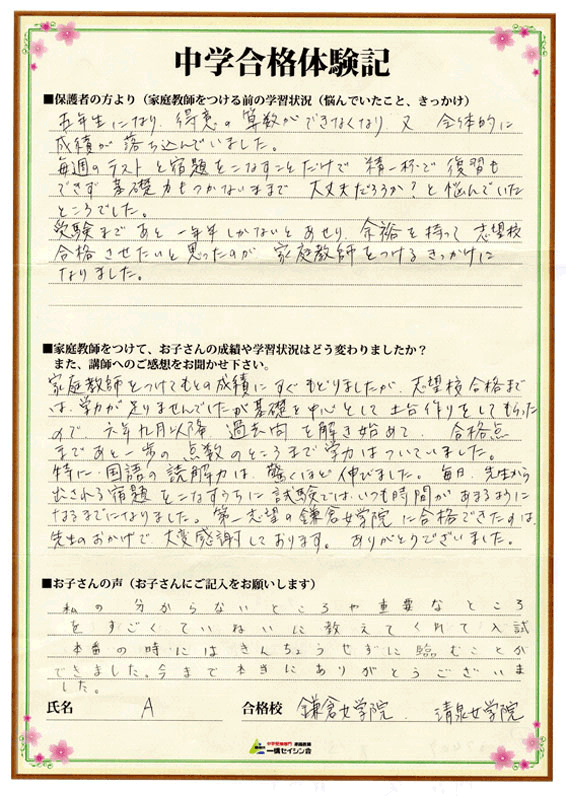 中学合格体験記
■保護者の方より（家庭教師をつける前の学習状況（悩んでいたこと、きっかけ）
5年生になり、得意の算数ができなくなり 又 全体的に
成績が落ち込んでいました。
毎週のテストと宿題をこなすことだけで 精一杯で 復習も
できず 基礎力もつかないままで 大丈夫だろうか？と悩んでいた
ところでした。
受験まであと一年半しかないとあせり、余裕を持って志望校
合格させたいと思ったのが 家庭教師をつけるきっかけに
なりました。
■家庭教師をつけて、お子さんの成績や学習状況はどう変わりましたか？
また、講師へのご感想をお聞かせ下さい。
家庭教師をつけてもとの成績にすぐもどりましたが、志望校合格まで
は、学力が足りませんでしたが基礎を中心として土台作りをしてもらった
ので、六年九月以降 過去問を解き始めて、合格点
まであと一歩の点数のところまで学力はついていました。
特に、国語の読解力は、驚くほど伸びました。毎日、先生から
出される宿題をこなすうちに試験では、いつも時間があまるように
なるまでになりました。第一志望の鎌倉女学院に合格できたのは、
先生のおかげで、大変感謝しております。ありがとうございました。
■お子さんの声（お子さんにご記入をお願いします）
私の分からないところや重要なところ
をすごくていねいに教えてくれて入試
本番の時にはきんちょうせずに臨むことが
できました。今まで本当にありがとうございま
した。
氏名 A 合格校 鎌倉女学院、清泉女学院
一橋セイシン会